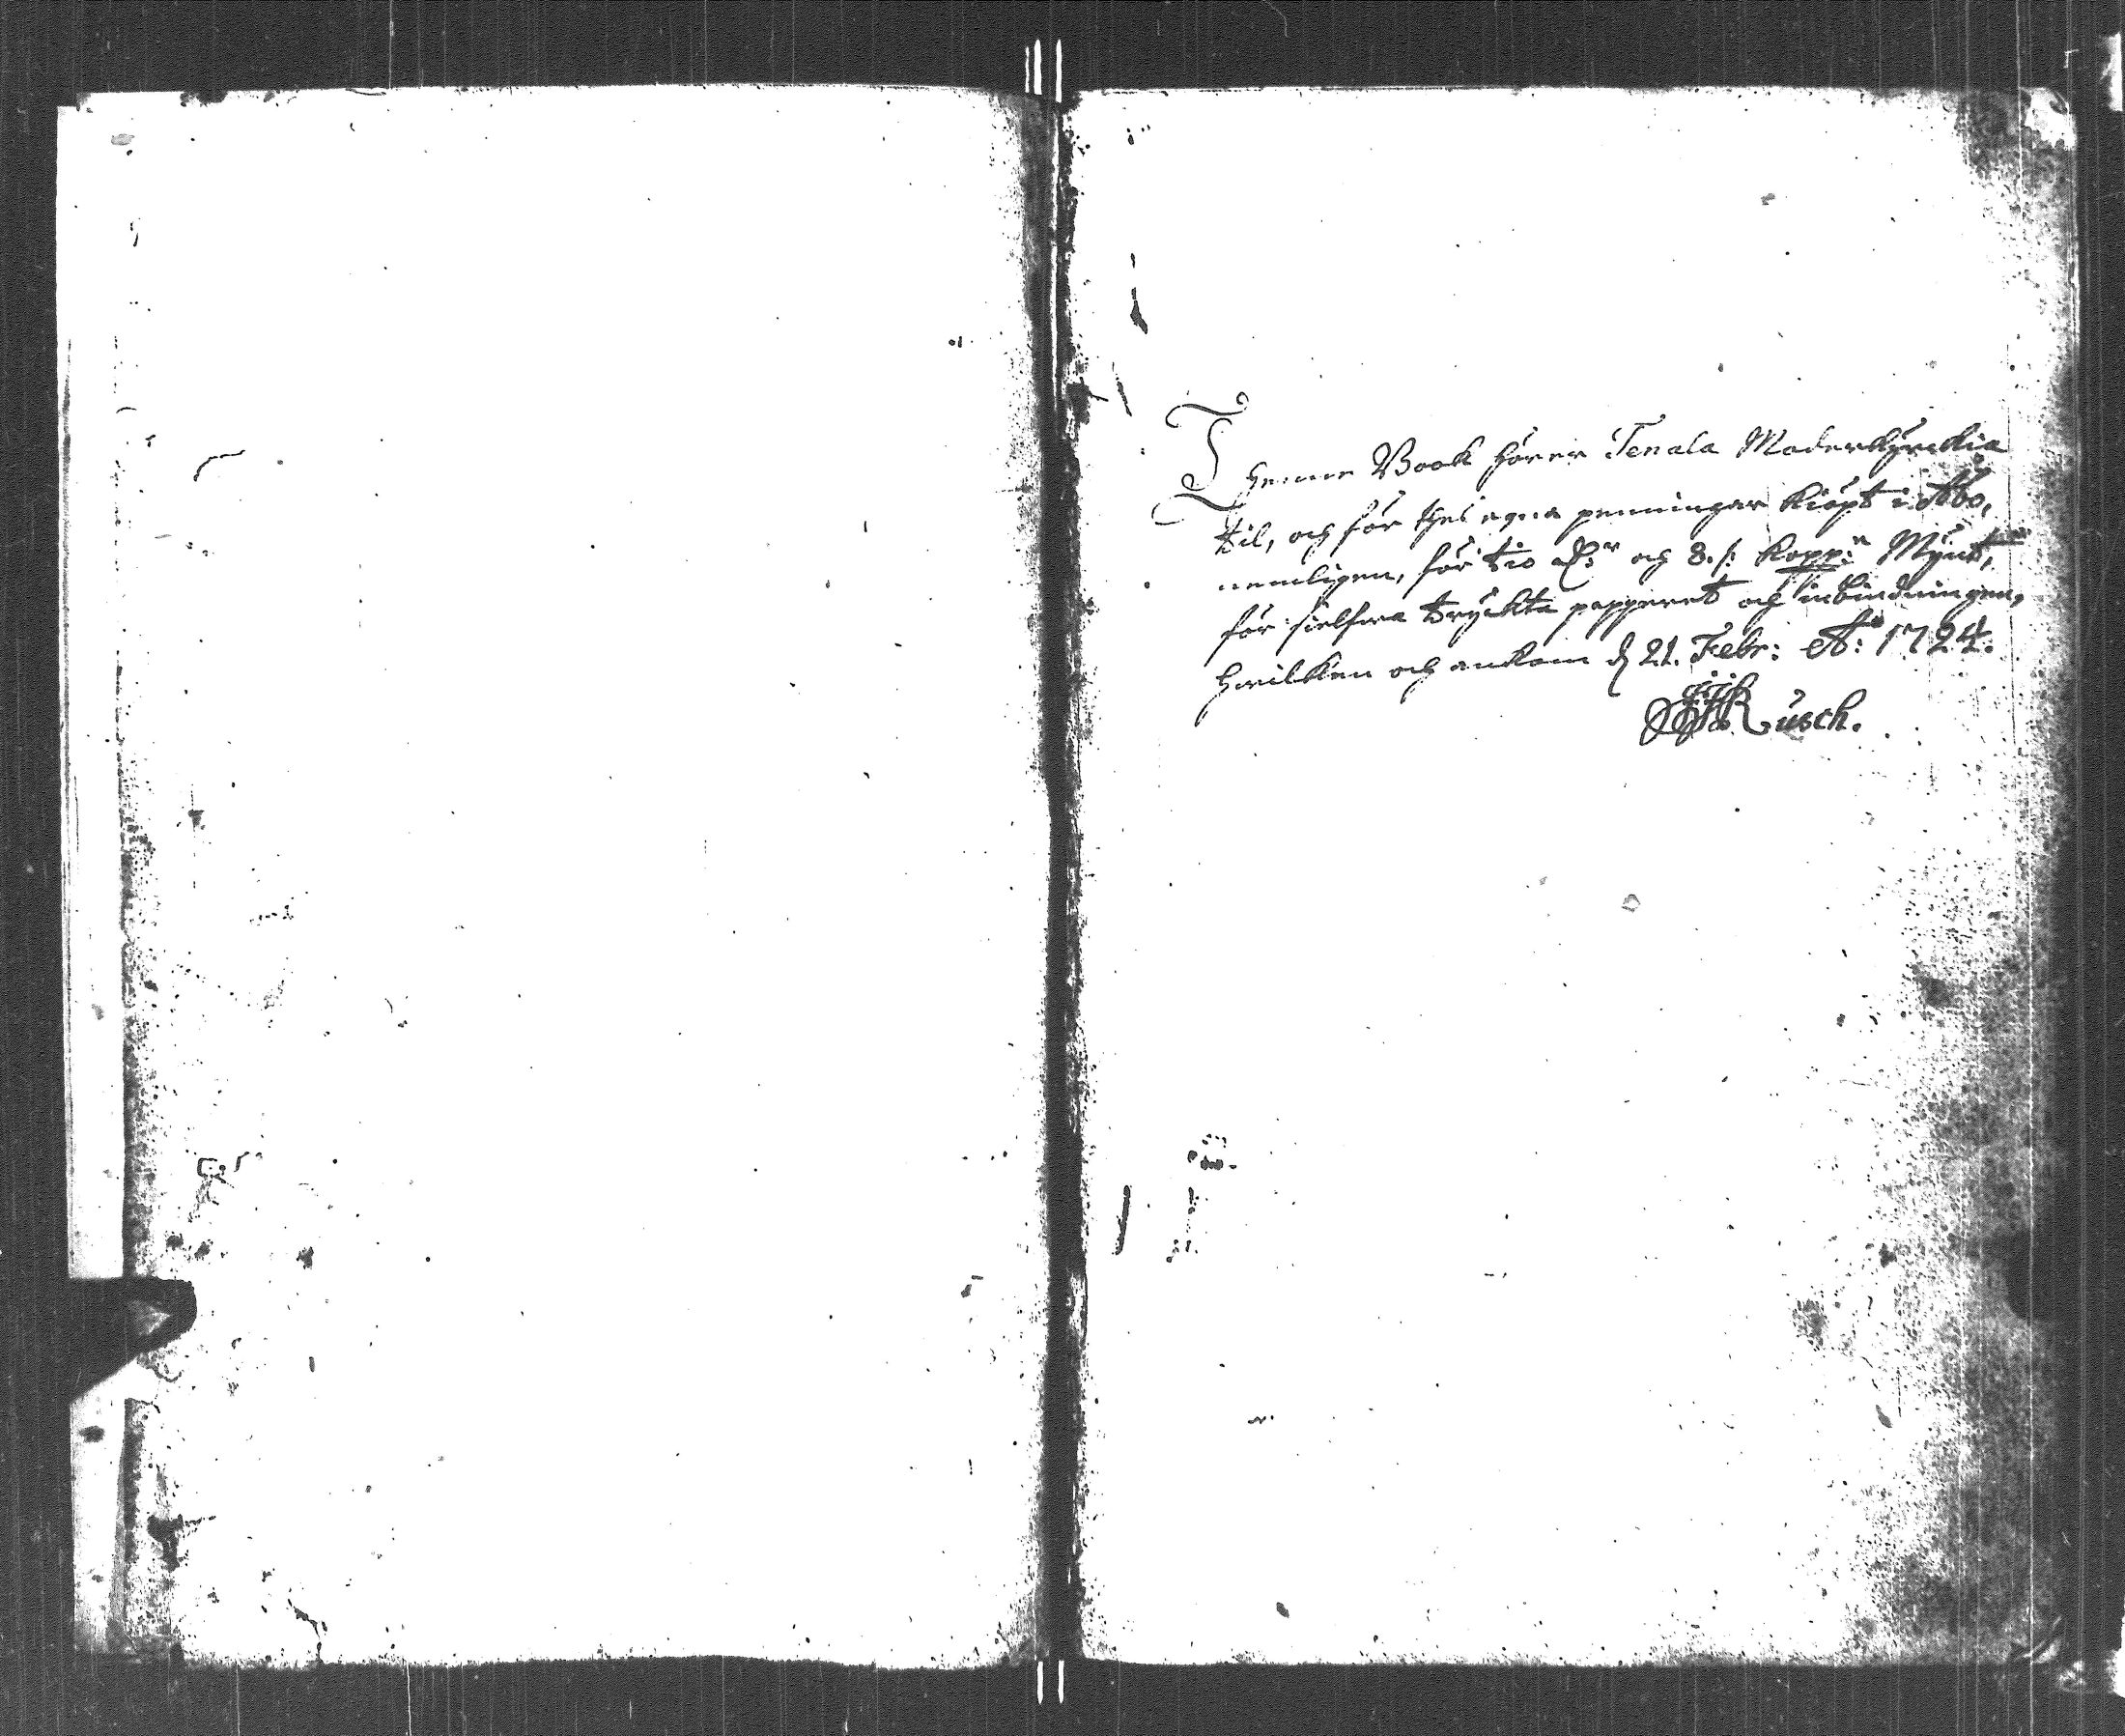 Thenne Book hörer Tenala Moderkyrckia
til, och för thes egna penningar kiöpt i Åbo,
nemligen, för tio D:r och 8. /: Kopp:r Mynt,
för sielfwa tryckta papperet och inbindningen,
hwilken och ankom d 21. Febr: A:o 1724.
Rusch.